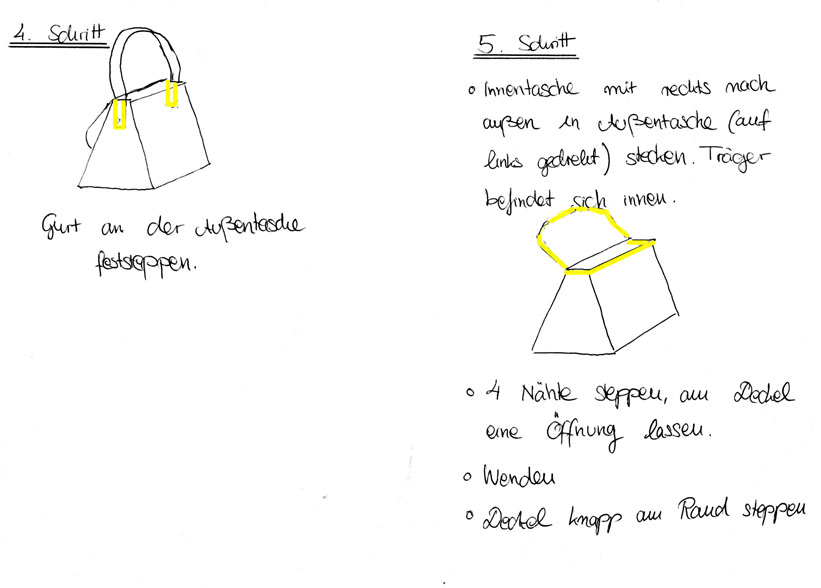 4. Schritt
Gurt an der Außentasche
feststeppen.
5. Schritt
o Innentasche mit rechts nach
außen in Außentasche (auf
links gedreht) stecken. Träger
befindet sich innen.
o 4 Nähte steppen, am Deckel
eine Öffnung lassen.
o Wenden
o Deckel knapp am Rand steppen